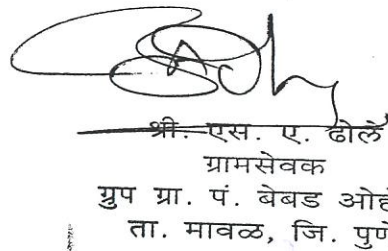 श्री. एस. ए. ढोले
ग्रामसेवक
ग्रुप ग्रा. पं. बेबड
ता. मावळ, जि. पुणे